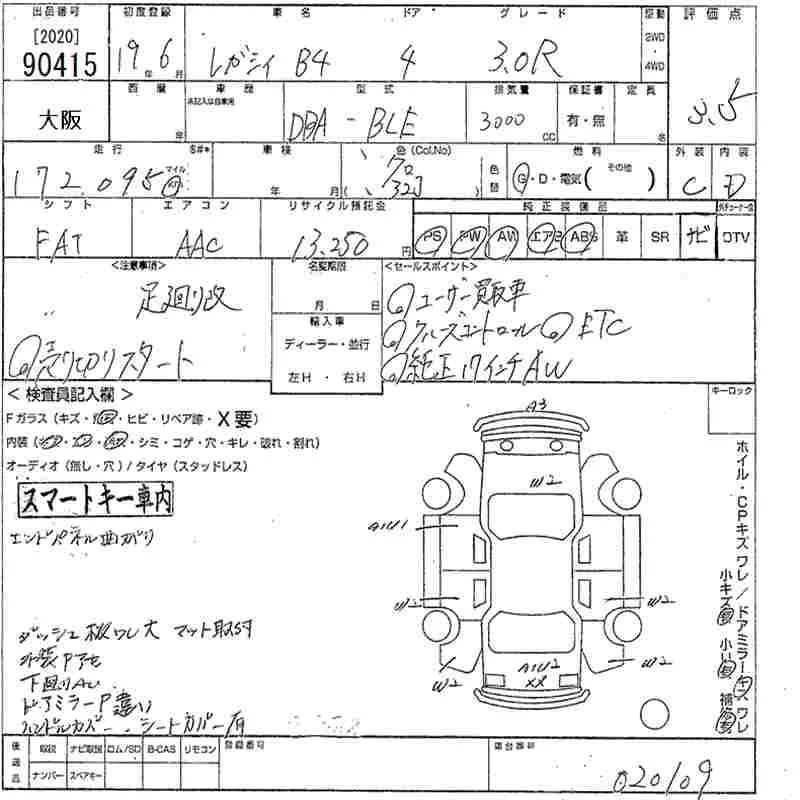 出品番号 初度登録 車名 ドア グレード 駆動 評価点
[2020]
90415 19年6月 レガシィ B4 4 3.0R 2WD・4WD
3.5
西暦 車歴 型式 排気量 保証書 定員
未記入は自家用
大阪 年 DBA - BLE 3000 CC 有・無 名
走行 S#* 車検 色(Col.No) 燃料 外装 内装
172,095 マイル 年 月 クロ 色替 G・D・電気(その他) C D
(32J)
シフト エアコン リサイクル預託金 純正装備品
FAT AAC 13,250円 PS PW AW エアB ABS 革 SR ナビ DTV
<注意事項> 名変期限 <セールスポイント>
足廻り改 月 日 ユーザー買取車
輸入車 クルーズコントロール ETC
売り切りスタート ディーラー・並行 純正17インチAW
左H・右H
<検査員記入欄> キーロック
Fガラス(キズ・・ヒビ・リペア跡・X要)
内装(・・・シミ・コゲ・穴・キレ・破れ・割れ)
オーディオ(無し・穴)/タイヤ(スタッドレス)
スマートキー車内
エンドパネル曲がり
A3
W2
A1U1
W2 W2
W2 A1U2 W2
XX
ホイル・CPキズワレ/ドアミラーキズワレ
小キズ 小凹 補修
ダッシュ板ワレ大 マット取付
外装Pアセ
下廻りAU
ドアミラーP違い
ハンドルカバー、シートカバー有
後送品 取説 ナビ取説 ロム/SD B-CAS リモコン 登録番号 車台番号
ナンバー スペアキー 020109